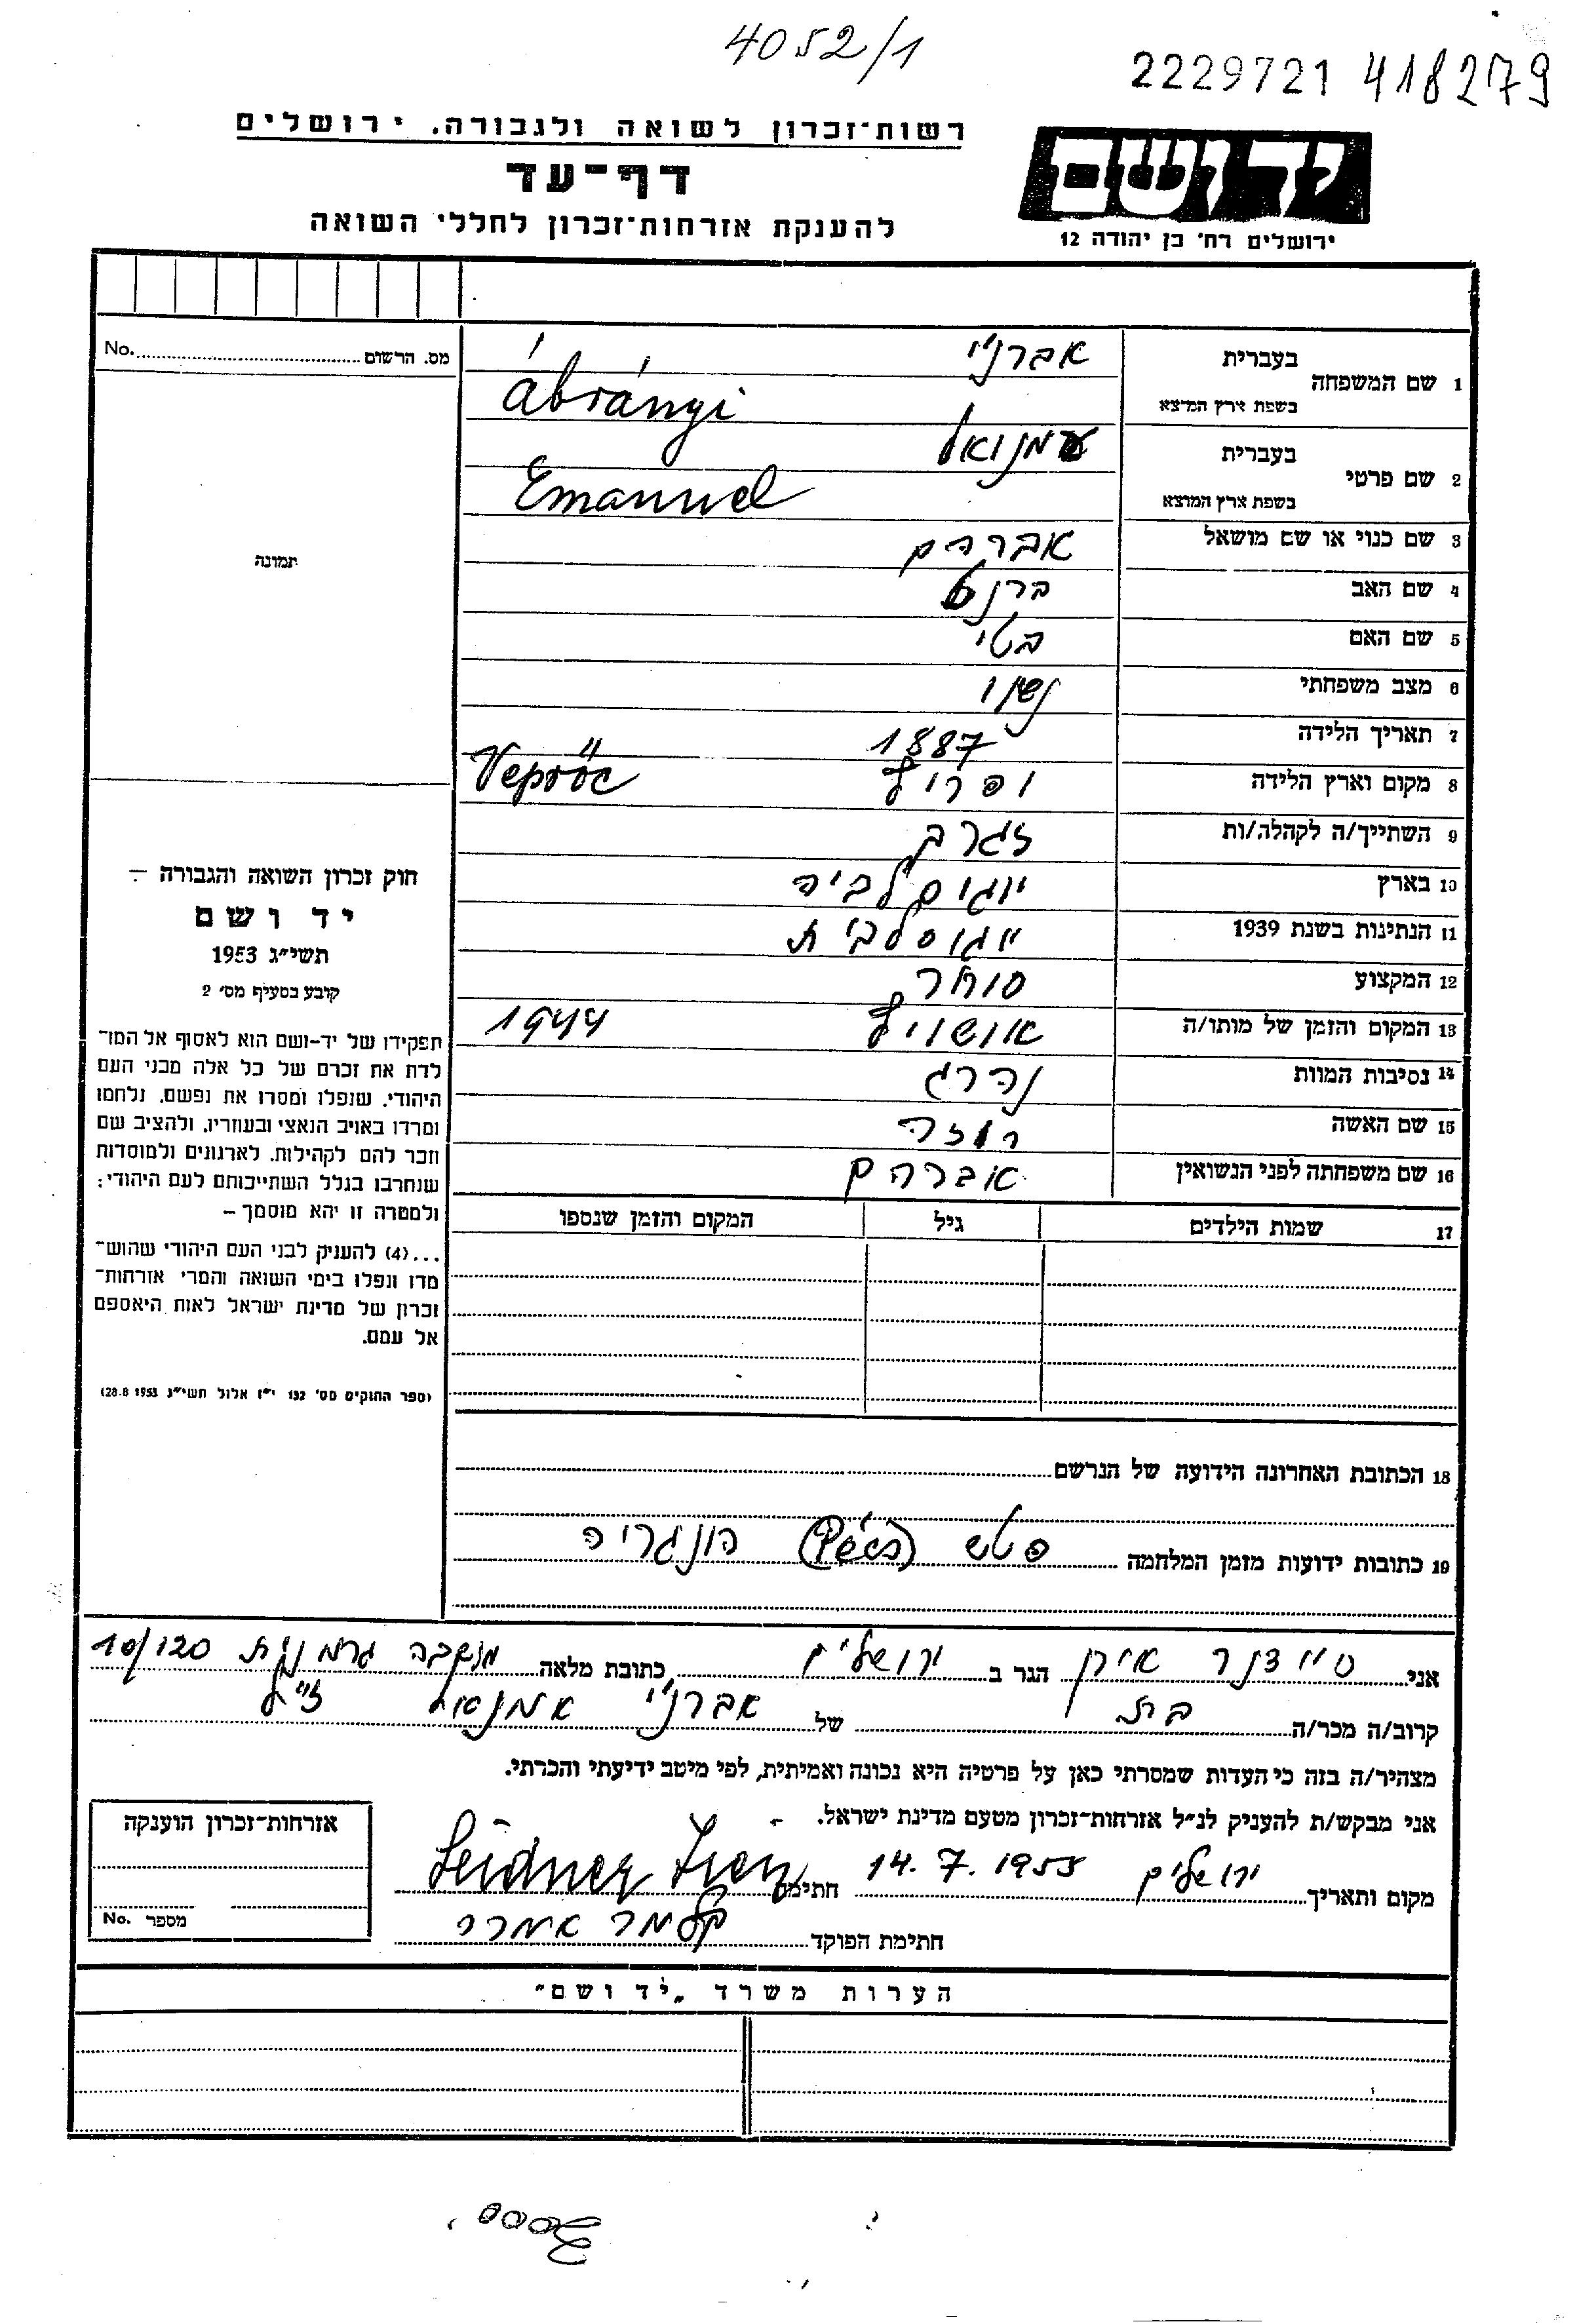 4052/1
2229721 418279
רשות־זכרון לשואה ולגבורה, ירושלים
יד ושם
דף־עד
להענקת אזרחות־זכרון לחללי השואה
ירושלים רח' בן יהודה 12
מס. הרשום No.
1 שם המשפחה בעברית אברני'
בשפת ארץ המוצא Ábrányi
2 שם פרטי בעברית עמנואל
בשפת ארץ המוצא Emanuel
3 שם כנוי או שם מושאל אברהם
תמונה
4 שם האב ברנט
5 שם האם בטי
6 מצב משפחתי נשוי
7 תאריך הלידה 1887
8 מקום וארץ הלידה ופרוץ Veprőc
9 השתייך/ה לקהלה/ות זגרב
10 בארץ יוגוסלביה
11 הנתינות בשנת 1939 יוגוסלבית
12 המקצוע סוחר
13 המקום והזמן של מותו/ה אושויץ 1944
14 נסיבות המוות נהרג
15 שם האשה רוזה
16 שם משפחתה לפני הנשואין אברהם
17 שמות הילדים גיל המקום והזמן שנספו
חוק זכרון השואה והגבורה —
יד ושם
תשי"ג 1953
קובע בסעיף מס' 2
תפקידו של יד-ושם הוא לאסוף אל המו־
לדת את זכרם של כל אלה מבני העם
היהודי, שנפלו ומסרו את נפשם, נלחמו
ומרדו באויב הנאצי ובעוזריו, ולהציב שם
וזכר להם לקהילות, לארגונים ולמוסדות
שנחרבו בגלל השתייכותם לעם היהודי;
ולמטרה זו יהא מוסמך –
...(4) להעניק לבני העם היהודי שהוש־
מדו ונפלו בימי השואה והמרי אזרחות־
זכרון של מדינת ישראל לאות היאספם
אל עמם.
(ספר החוקים מס' 132 י"ז אלול תשי"ג 28.8.1953)
18 הכתובת האחרונה הידועה של הנרשם
19 כתובות ידועות מזמן המלחמה פטש (Pécs) הונגריה
אני סיידנר אירן הגר ב ירושלים כתובת מלאה מושבה גרמנית 10/120
קרוב/ה מכר/ה בת של אברני' אמנואל ז"ל
מצהיר/ה בזה כי העדות שמסרתי כאן על פרטיה היא נכונה ואמיתית, לפי מיטב ידיעתי והכרתי.
אני מבקש/ת להעניק לנ"ל אזרחות־זכרון מטעם מדינת ישראל.
מקום ותאריך ירושלים 14.7.1955 חתימה Seidner Irén
חתימת הפוקד
אזרחות־זכרון הוענקה
מספר No.
הערות משרד „יד ושם"